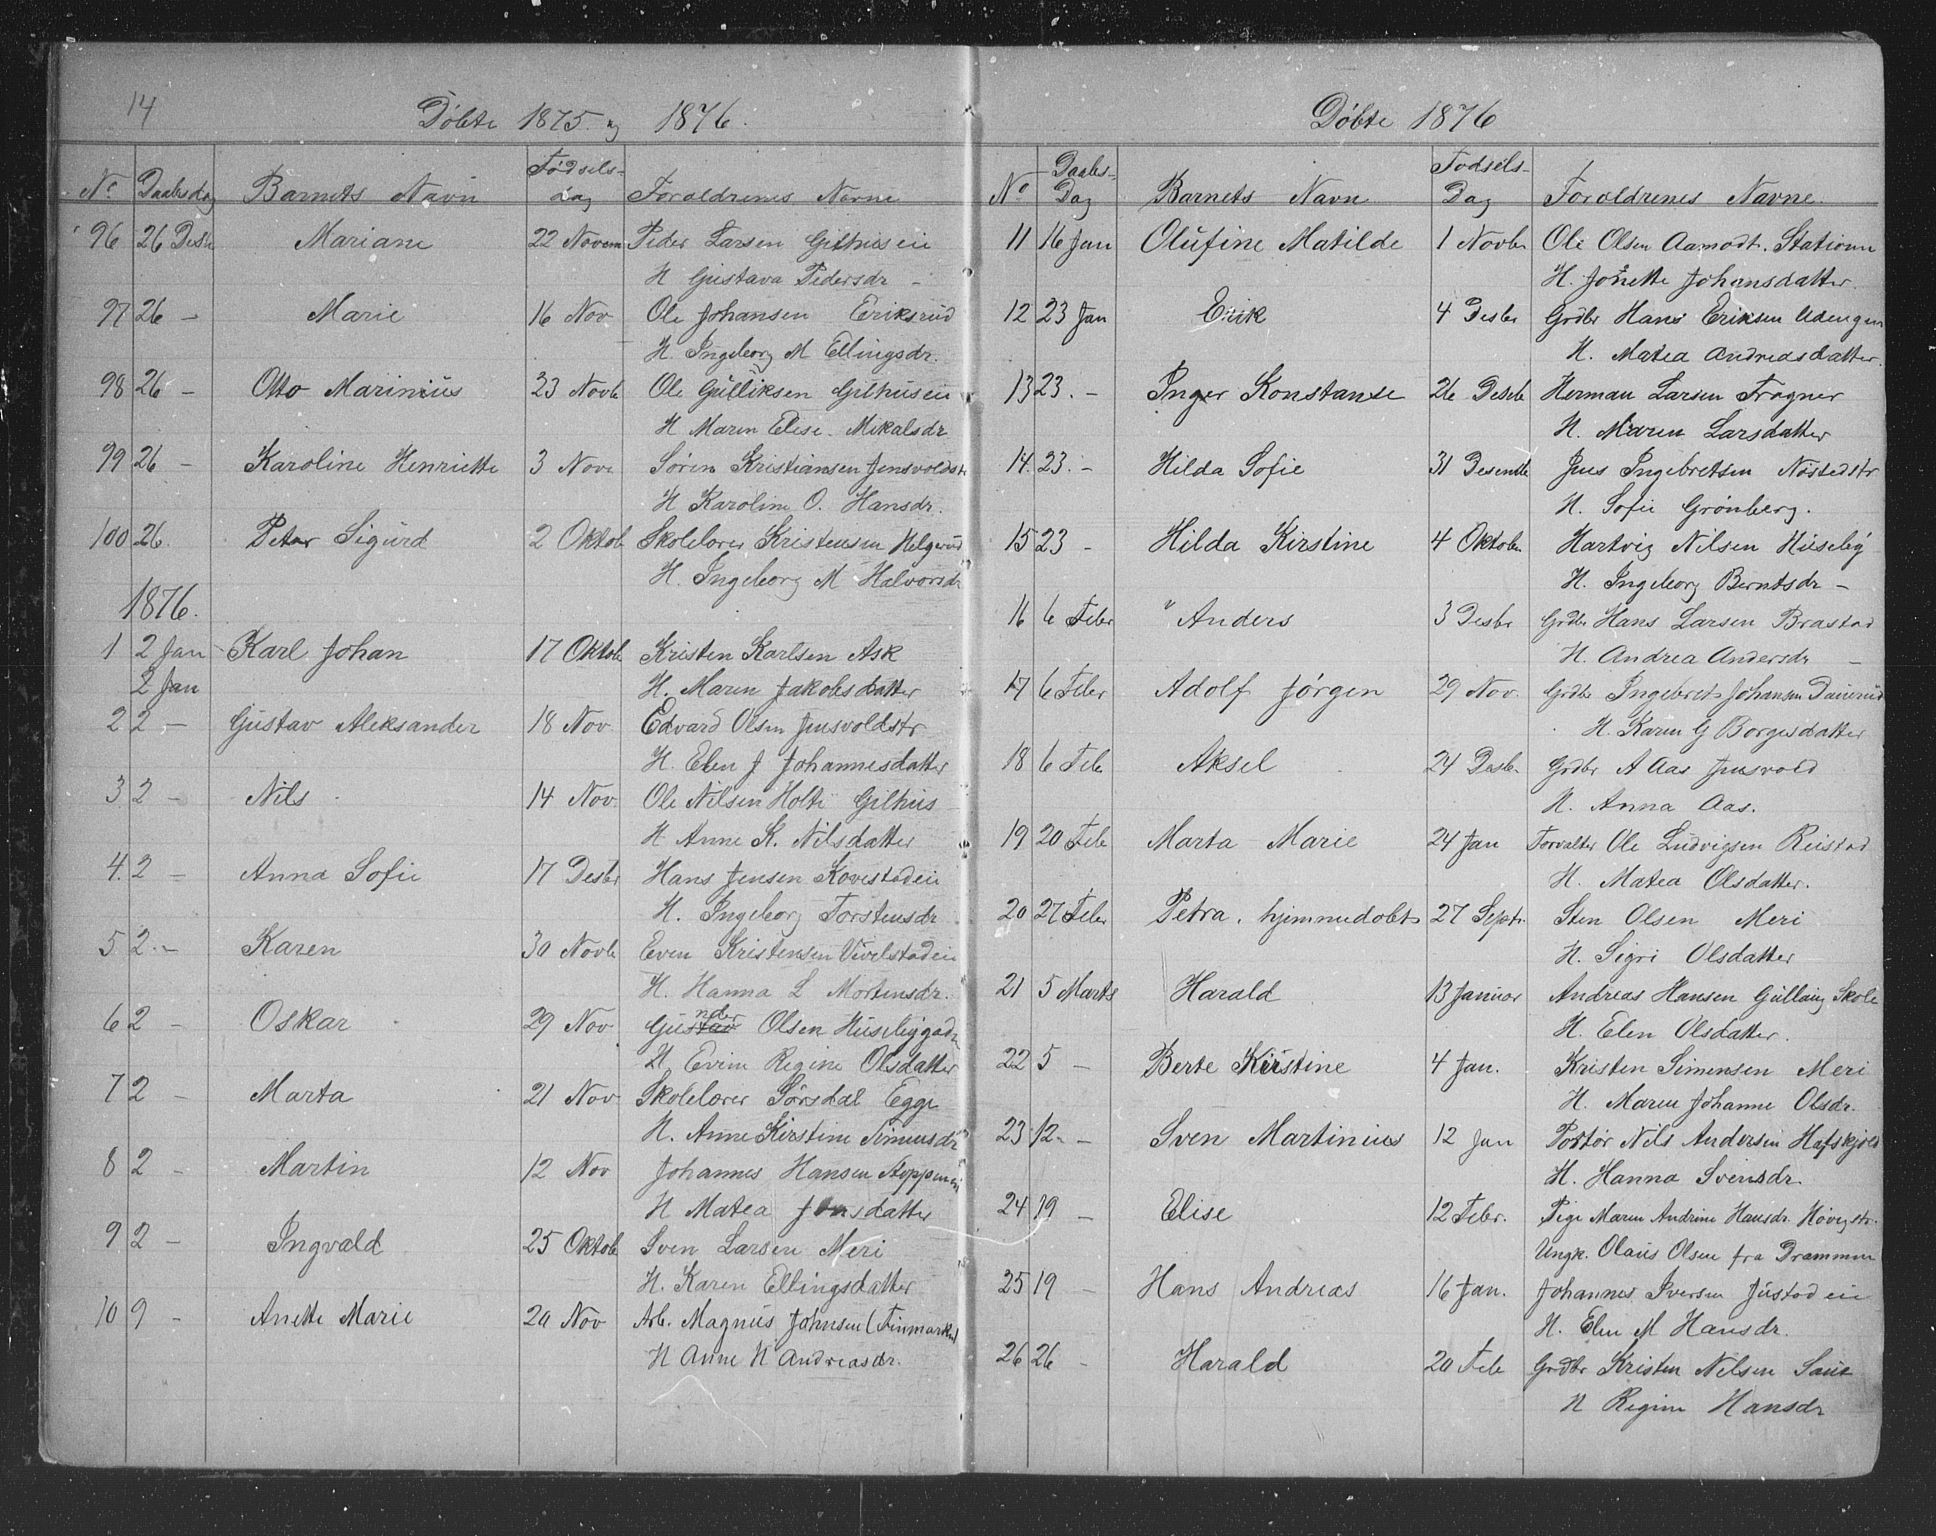 14
Döbte 1875 og 1876.
No Daabsdag Barnets Navn Födsels-dag Foraldrenes Navne
96 26 Desbr Mariane 22 Novem Peder Larsen Gilhus eie
H Gustava Pedersdr -
97 26 - Marie 16 Nov Ole Johansen Eriksrud
H. Ingeborg M Ellingsdr.
98 26 - Otto Marinius 23 Novb Ole Gulliksen Gilhus eie
H Maren Elise Mikalsdr
99 26 - Karoline Henriette 3 Nov Sören Kristiansen Jensvoldstr
H Karoline O. Hansdr.
100 26. Peter Sigurd 2 Oktob Skolelærer Kristensen Helgerud
H. Ingeborg M Halvorsdr
1876.
1 2 Jan Karl Johan 17 Oktob Kristen Karlsen Ask
2 Jan H. Maren Jakobsdatter
2 2 - Gustav Aleksander 18 Nov Edvard Olsen Jensvoldstr
H. Elen J Johannesdatter
3 2 - Nils 14 Nov Ole Nilsen Holte Gilhus
H Anne K. Nilsdatter
4. 2 - Anna Sofie 17 Desbr Hans Jensen Kovestad eie
H. Ingeborg Torstensdr
5 2. - Karen 30 Novb Even Kristensen Vivelstad eie
H. Hanna L Mortensdr.
6 2 - Oskar 29 Nov Gustav nder Olsen Husebygadn
H Evine Regine Olsdatter
7 2 - Marta 21 Nov Skolelærer Sørsdal Egge
H. Anne Kirstine Simensdr
8 2 - Martin 12 Nov Johannes Hansen Stoppen eie
H Matea Jonsdatter
9 2 - Ingvald 25 Oktob Sven Larsen Meri
H. Karen Ellingsdatter
10 9 - Anette Marie 20 Nov Arb. Magnus Johnsen (Finmarken)
H Anne N Andreasdr.
Döbte 1876
No Daabs-Dag Barnets Navn Födsels-Dag Foraldrenes Navne
11 16 Jan Olufine Matilde 1 Novbr Ole Olsen Aamodt Station
H. Jonette Johansdatter.
12 23 Jan Erik 4 Desbr Grdbr Hans Eriksen Udengen
H. Matea Andreasdatter
13 23. - Inger Konstanse 26 Desbr Herman Larsen Frogner
H. Maren Larsdatter
14. 23. - Hilda Sofie 31 Desembr Jens Ingebretsen Nøstedstr
H. Sofie Grönberg.
15 23 - Hilda Kirstine 4 Oktober Hartvig Nilsen Huseby
H. Ingeborg Berntsdr -
16 6 Febr Anders 3 Desbr Grdbr Hans Larsen Brastad
H. Andrea Andersdr -
17 6 Febr Adolf Jörgen 29 Nov Grdbr Ingebret Johansen Dauerud
H. Karen G Borgesdatter
18 6 Feb Aksel 24 Desbr Grdbr A Aas Jensvold
H. Anna Aas.
19 20 Feb Marta Marie 24 Jan Forvalter Ole Ludvigsen Reistad
H. Matea Olsdatter.
20 27 Febr Petra. hjemmedöbt 27 Septr. Sten Olsen Meri
H. Sigri Olsdatter
21 5 Marts Harald 13 Januar Andreas Hansen Gullaug Skole
H. Elen Olsdatter.
22 5 - Berte Kirstine 4 Jan. Kristen Simensen Meri
H. Maren Johanne Olsdr.
23 12. - Sven Martinius 12 Jan Portör Nils Andersen Hafskjold
H. Hanna Svensdr.
24 19 - Elise 12 Febr. Pige Maren Andrine Hansdr. Høvigstr.
Ungk. Olaus Olsen fra Drammen
25 19 - Hans Andreas 16 Jan. Johannes Iversen Justad eie
H. Elen M Hansdr.
26 26 - Harald 20 Feb Grdbr Kristen Nilsen Saue
H Regine Hansdr